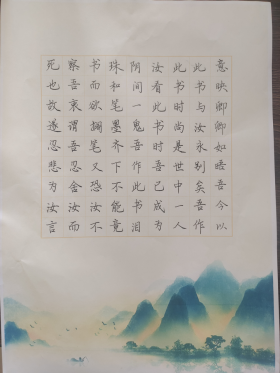 意映卿卿如晤吾今以
此书与汝永别矣吾作
此书时尚是世中一人
汝看此书时吾已成为
阴间一鬼吾作此书泪
珠和笔墨齐下不能竟
书而欲搁笔又恐汝不
察吾衷谓吾忍舍汝而
死也故遂忍悲为汝言